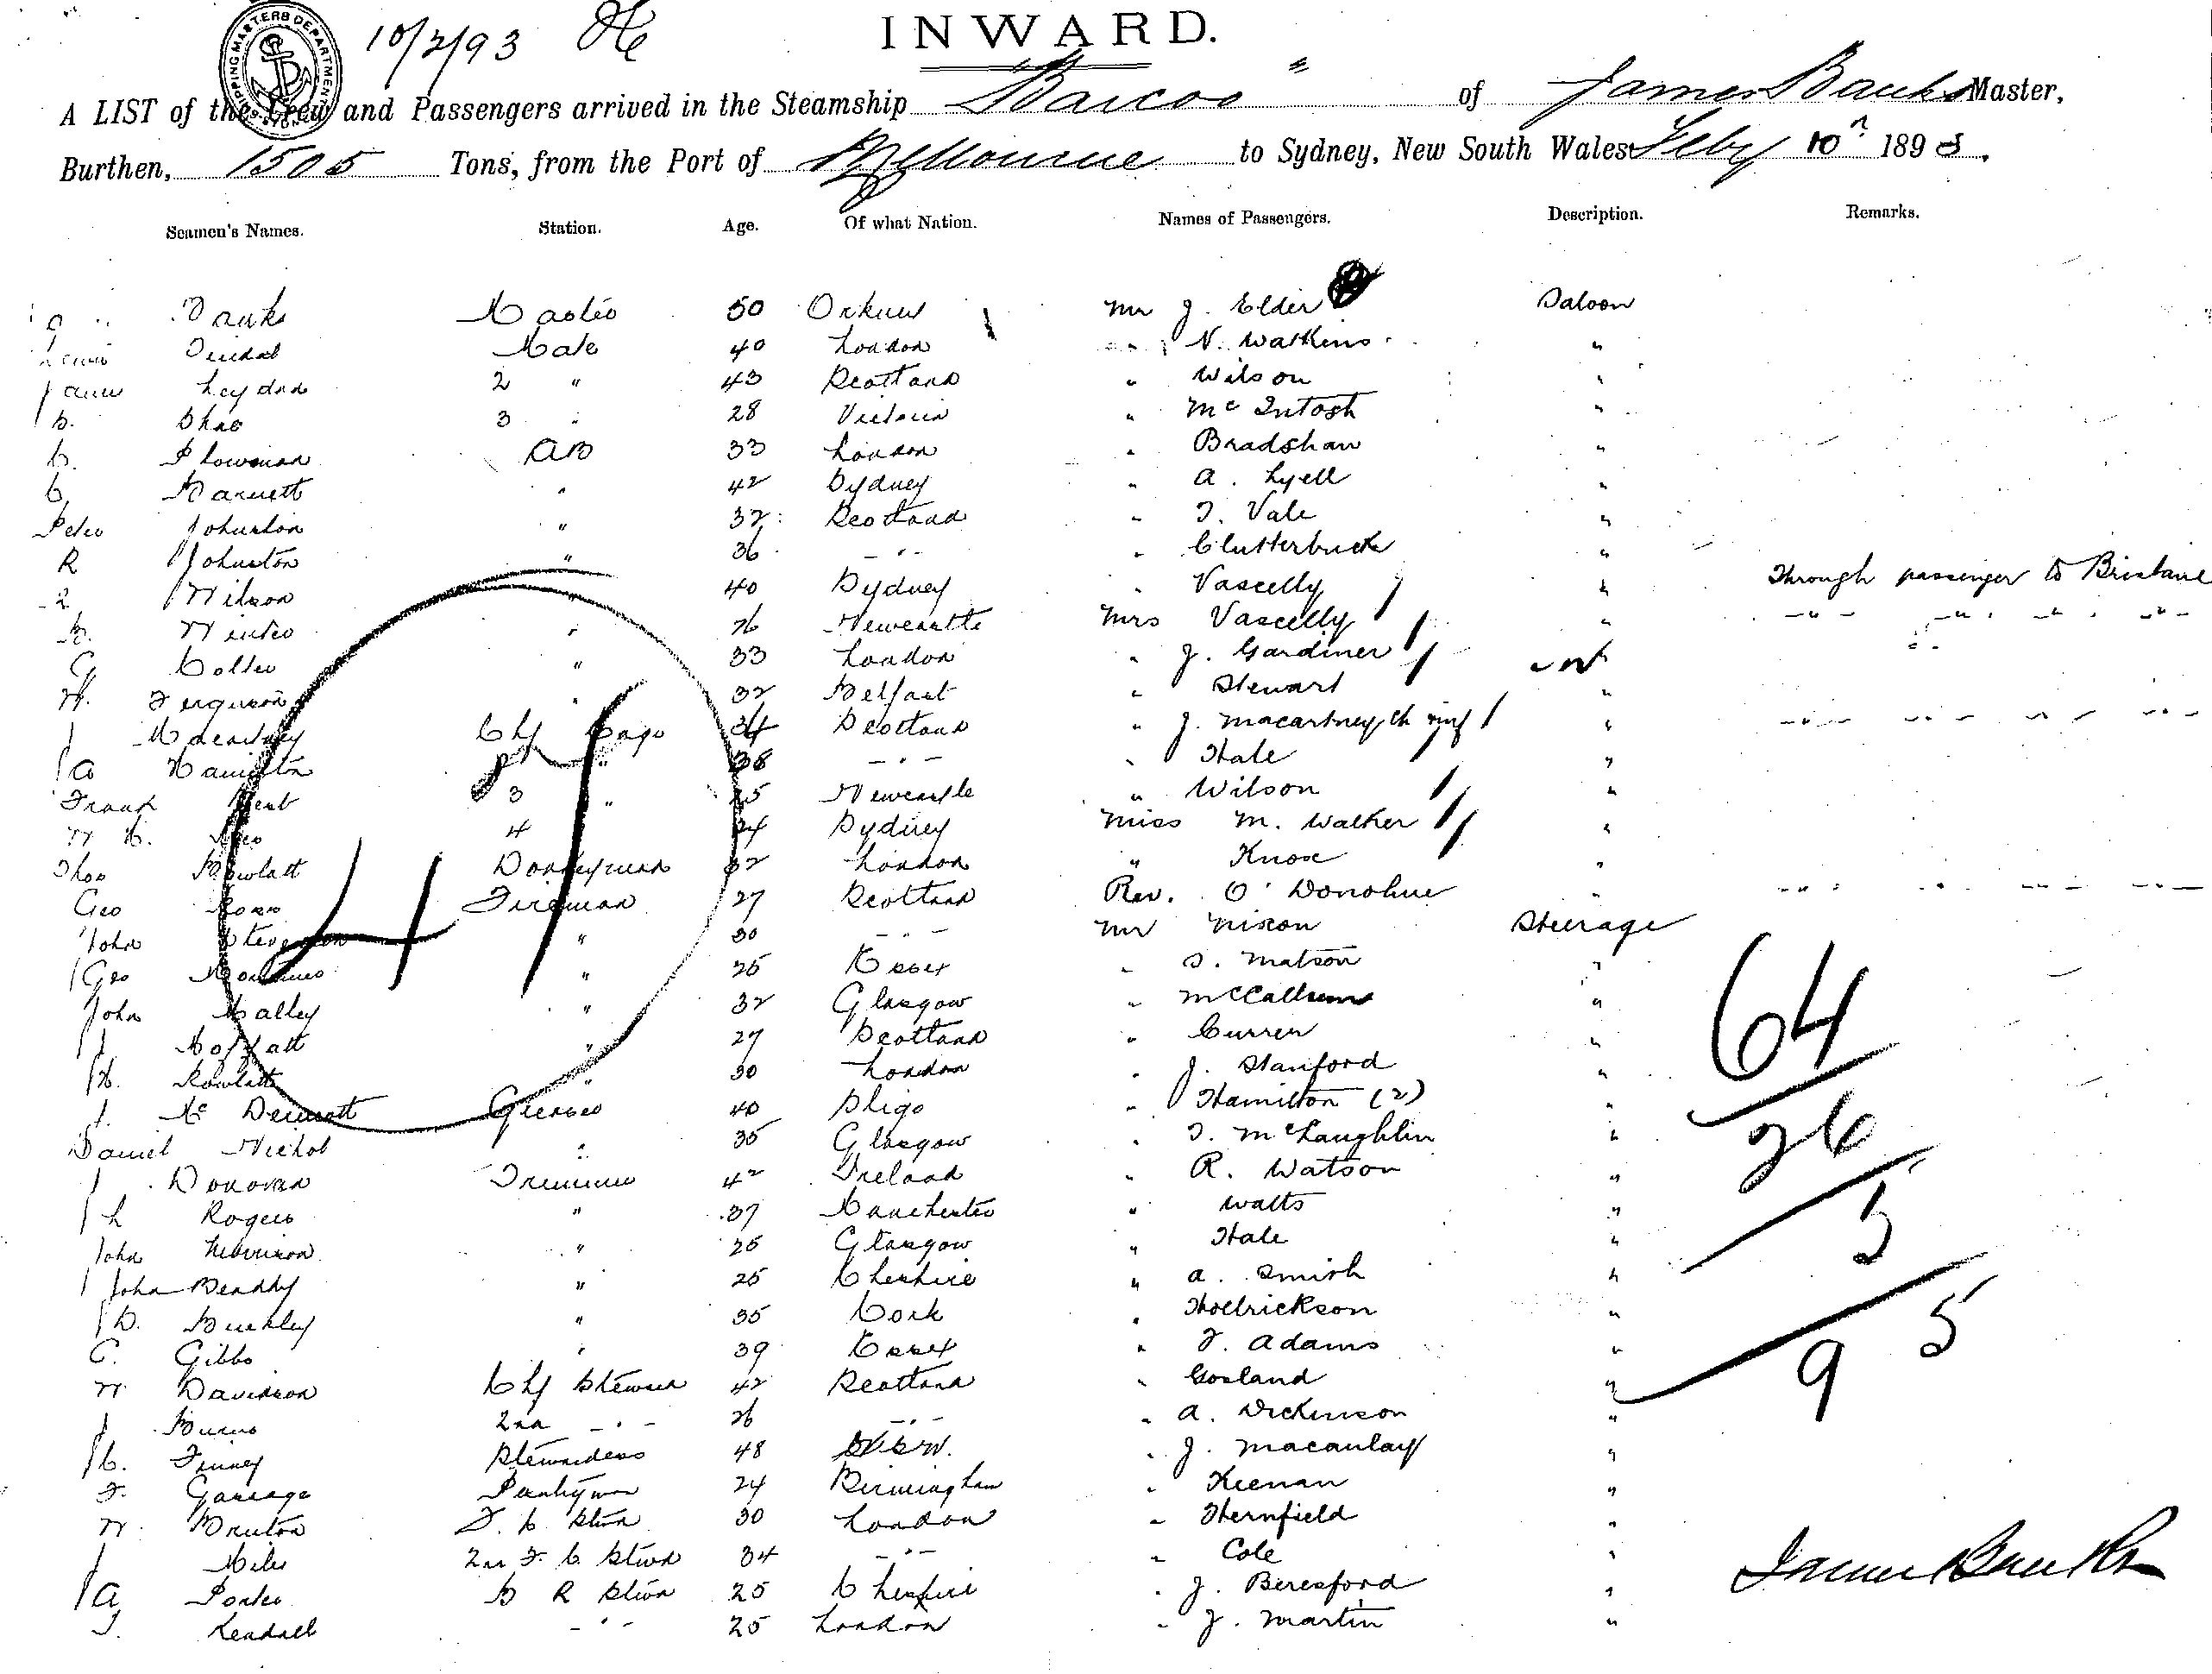 10/2/93
SHIPPING MASTERS DEPARTMENT SYDNEY
INWARD.
A LIST of the Crew and Passengers arrived in the Steamship "Barcoo" of James Banks Master,
Burthen, 1505 Tons, from the Port of Melbourne to Sydney, New South Wales Feby 10 1893.
Seamen's Names. Station. Age. Of what Nation. Names of Passengers. Description. Remarks.
Banks 50 Mr J. Elder Saloon
Mate 40 London " N. Watkins "
Leydon 2 " 43 Scotland " Wilson "
3 " 28 Victoria " Mc Intosh "
Plowman AB 33 London " Bradshaw "
C. Barnett " 42 Sydney " A. Lyell "
Peter Johnston " 32 Scotland " T. Vale "
R Johnston " 36 - " - " Clutterbuck "
Wilson " 40 Sydney " Vascelly " Through passenger to Brisbane
" 26 Newcastle Mrs Vascelly " - " - " - " - " -
G " 33 London " J. Gardiner
W. Ferguson " 32 Belfast " Stewart "
J Chf 34 Scotland " J. Macartney " - " - " - " - " -
A Hamilton " 38 - " - " Hale "
Frank Kent 3 " 25 Newcastle " Wilson "
4 24 Sydney Miss M. Walker "
Thos Rowlatt Donkeyman 32 London " Knox "
Geo Ross Fireman 27 Scotland Rev. O'Donohue " - " - " - " - " -
John Stevenson " 30 - " - Mr Nixon Steerage
Geo " 25 Essex " S. Matson "
John Malley " 32 Glasgow " McCallum "
J Moffatt " 27 Scotland " Curren "
H. Rowlatt " 30 London " J. Stanford "
J. Mc Dermott Greaser 40 Sligo " Hamilton (2) "
Daniel Nichol " 35 Glasgow " T. McLaughlin "
J Donovan Trimmer 42 Ireland " R. Watson "
L Rogers " 37 Manchester " Watts "
John " 25 Glasgow " Hale "
John " 25 Cheshire " A. Smith "
D. Buckley " 35 Cork " Hoelrickson "
C. Gibbs " 39 Essex " F. Adams "
W. Davidson Chf Steward 42 Scotland " Gosland "
J Burns 2nd - " - 26 - " - " A. Dickenson "
C. Finney Stewardess 48 NSW. " J. Macaulay "
F. Pantryman 24 Birmingham " Keenan "
W. Bruton F. C. Stwd 30 London " Hernfield "
J Miles 2nd F. C. Stwd 34 - " - " Cole "
A Porter B R Stwd 25 Cheshire " J. Beresford "
T. Kendall - " - 25 London " J. Martin "
41
64
26
5
95
James Banks